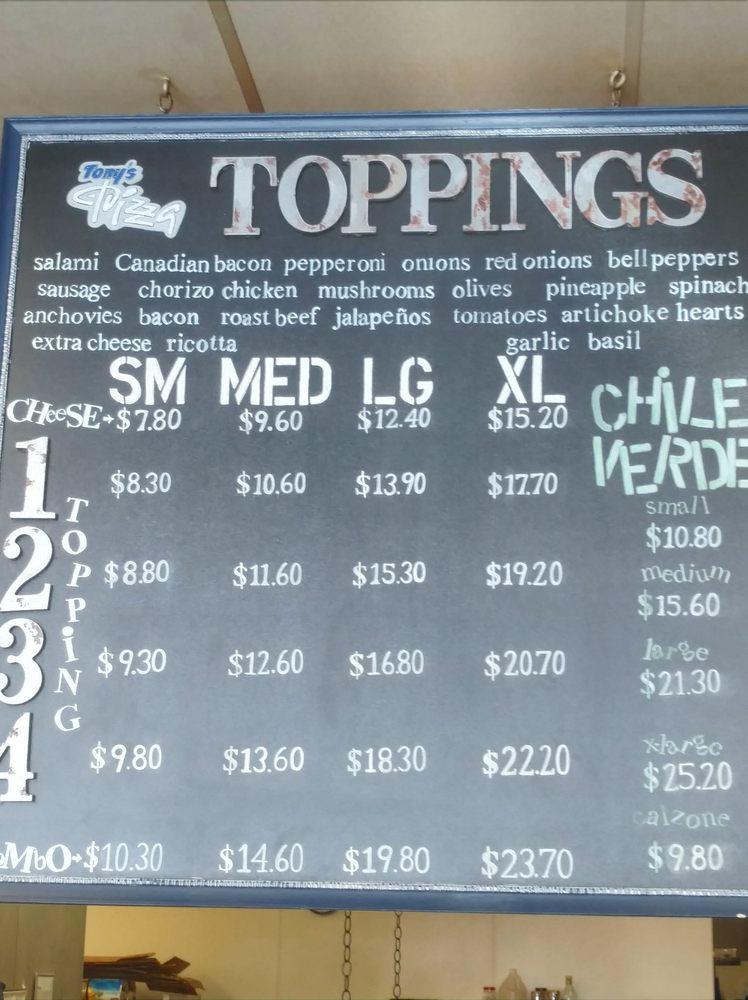 Tony's
Pizza
TOPPINGS
salami Canadian bacon pepperoni onions red onions bell peppers
sausage chorizo chicken mushrooms olives pineapple spinach
anchovies bacon roast beef jalapeños tomatoes artichoke hearts
extra cheese ricotta garlic basil
SM MED LG XL
CHeeSE $7.80 $9.60 $12.40 $15.20
1 $8.30 $10.60 $13.90 $17.70
2 $8.80 $11.60 $15.30 $19.20
3 $9.30 $12.60 $16.80 $20.70
4 $9.80 $13.60 $18.30 $22.20
TOPPiNG
MbO $10.30 $14.60 $19.80 $23.70
CHiLE
VERDE
small
$10.80
medium
$15.60
large
$21.30
x-large
$25.20
calzone
$9.80